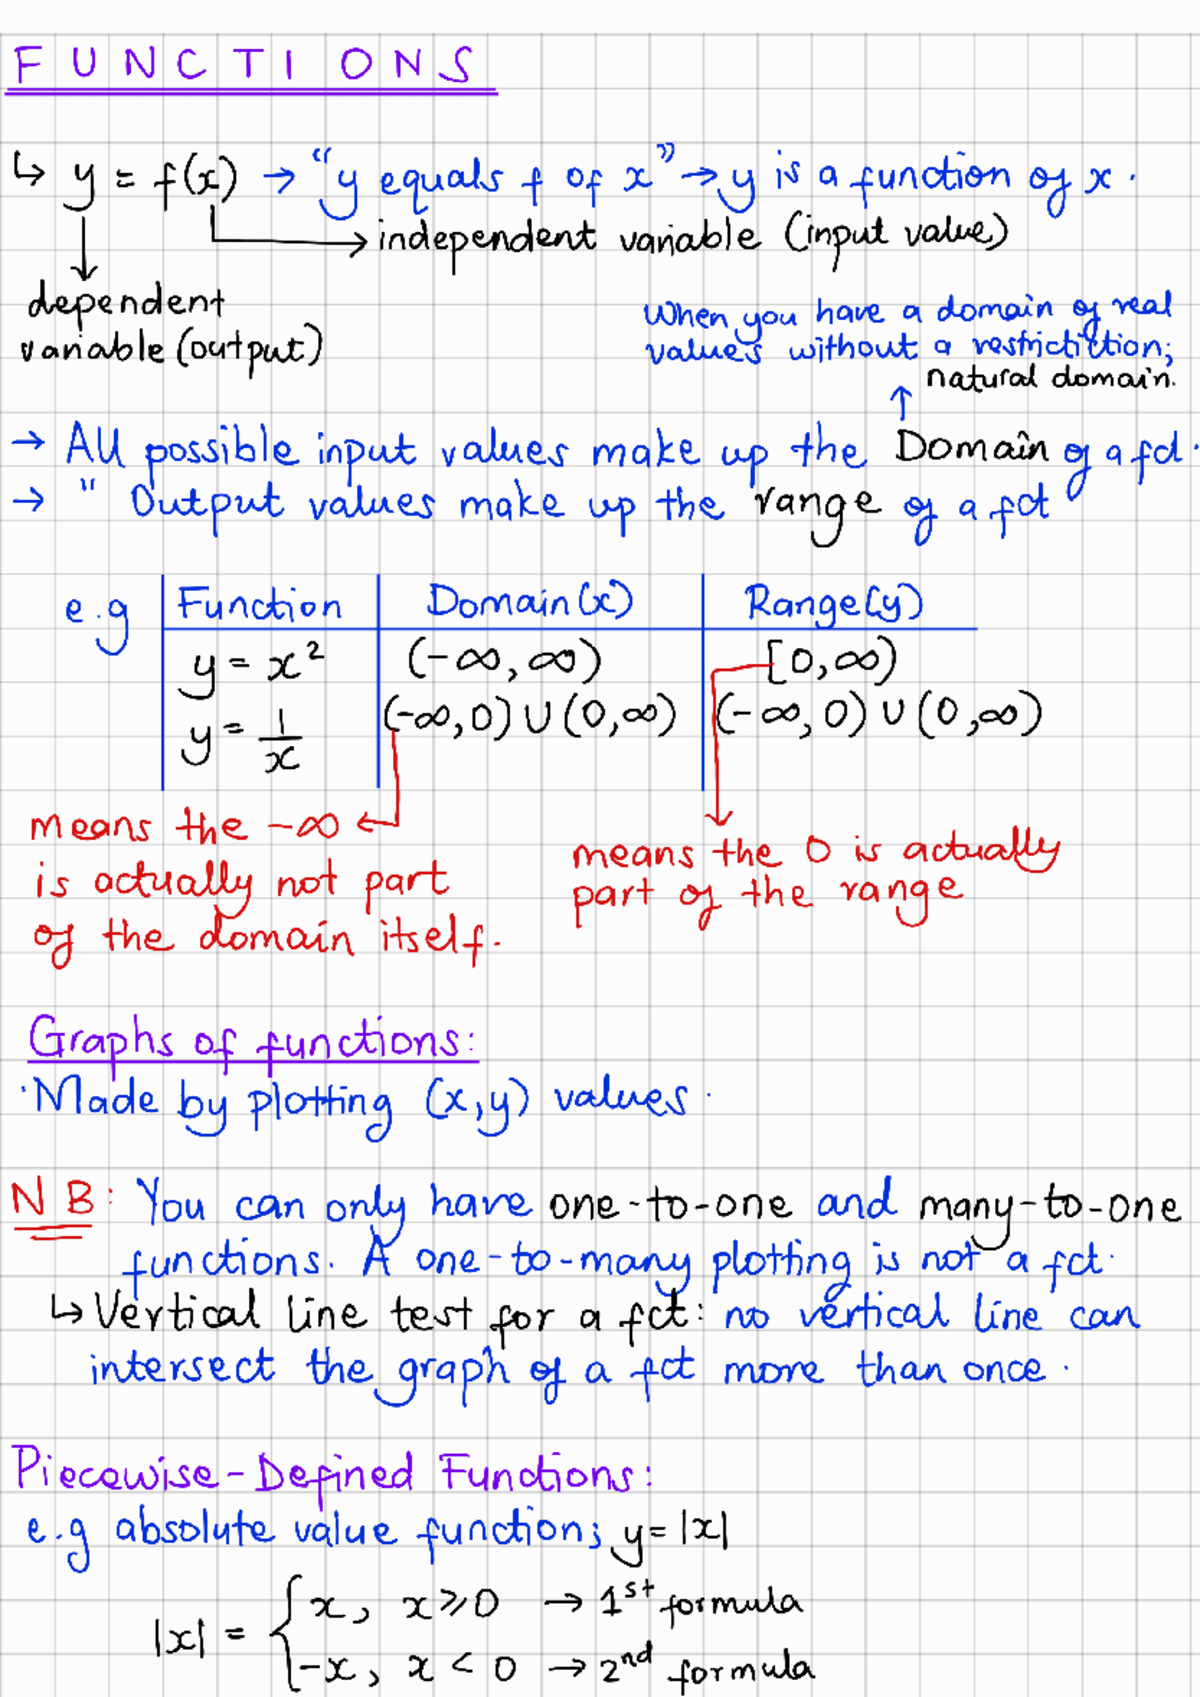 FUNCTIONS
↳ y = f(x) → "y equals f of x" → y is a function of x.
→ independent variable (input value)
dependent
variable (output)
When you have a domain of real
values without a restrictiction;
natural domain.
→ All possible input values make up the Domain of a fct.
→ " Output values make up the range of a fct
e.g Function Domain(x) Range(y)
y = x² (-∞, ∞) [0, ∞)
y = 1/x (-∞, 0) ∪ (0, ∞) (-∞, 0) ∪ (0, ∞)
means the -∞
is actually not part
of the domain itself.
means the 0 is actually
part of the range
Graphs of functions:
·Made by plotting (x,y) values.
NB: You can only have one-to-one and many-to-one
functions. A one-to-many plotting is not a fct.
↳ Vertical line test for a fct: no vertical line can
intersect the graph of a fct more than once.
Piecewise-Defined Functions:
e.g absolute value function; y = |x|
|x| = { x, x ⩾ 0 → 1st formula
-x, x < 0 → 2nd formula